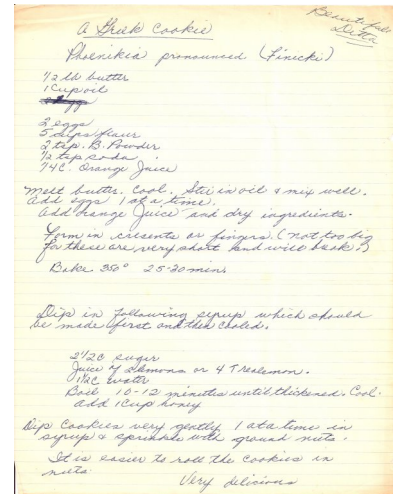 A Greek Cookie
Beautiful
Ditta
Phoenikia pronounced (Finecki)
1/2 lb butter
1 Cup oil
2 eggs
5 cups flour
2 tsp. B. Powder
1/2 tsp soda
1/4 C. Orange Juice
Melt butter. Cool. Stir in oil & mix well.
Add eggs 1 at a time.
Add orange Juice and dry ingredients.
Form in cresents or fingers. (not too big
for these are very short and will break.)
Bake 350° 25-30 mins
Dip in following syrup which should
be made first and then cooled.
2 1/2 C sugar
Juice of 2 lemons or 4 T realemon.
1 1/2 C water
Boil 10-12 minutes until thickened. Cool.
Add 1 Cup honey
Dip Cookies very gently 1 at a time in
syrup & sprinkle with ground nuts.
It is easier to roll the cookies in
nuts
Very delicious